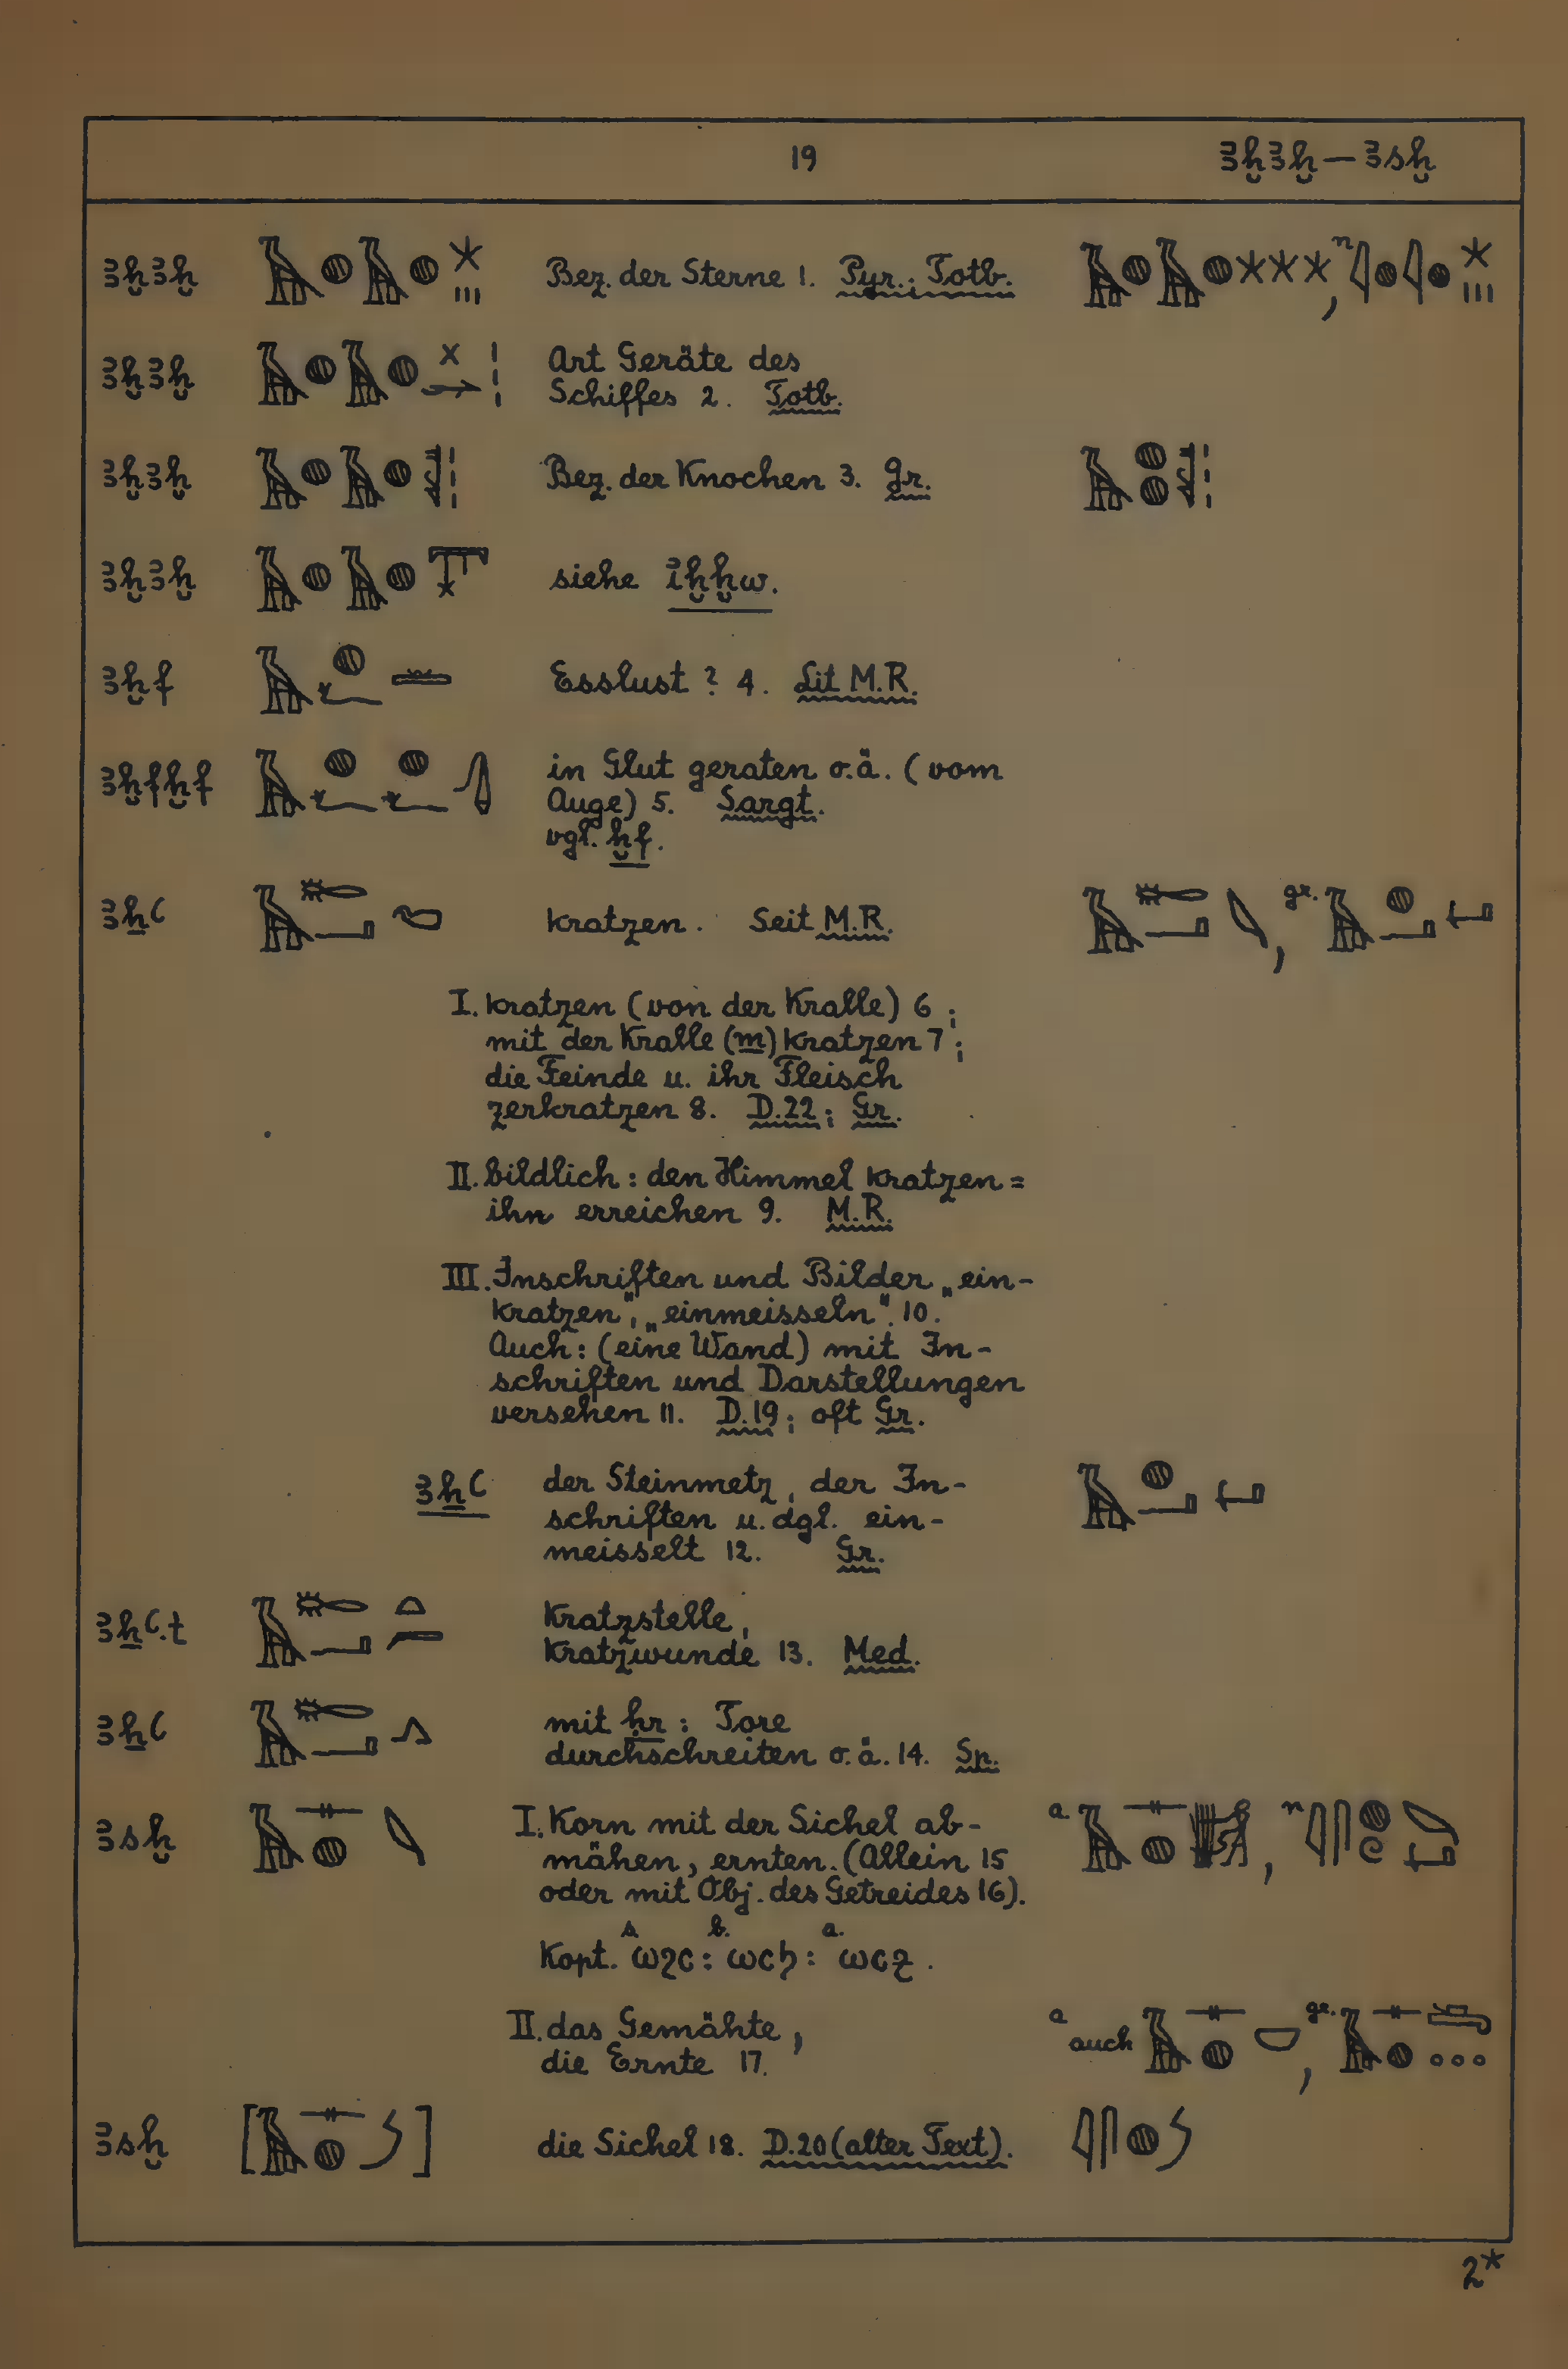 19 ꜣḫꜣḫ — ꜣsḫ
ꜣḫꜣḫ Bez. der Sterne 1. Pyr.; Totb.
ꜣḫꜣḫ Art Geräte des
Schiffes 2. Totb.
ꜣḫꜣḫ Bez. der Knochen 3. Gr.
ꜣḫꜣḫ siehe iḫḫw.
ꜣḫf Esslust ? 4. Lit M.R.
ꜣḫfḫf in Glut geraten o.ä. (vom
Auge) 5. Sargt.
vgl. ḫf.
ꜣẖꜥ kratzen. Seit M.R. gr.
I. kratzen (von der Kralle) 6;
mit der Kralle (m) kratzen 7;
die Feinde u. ihr Fleisch
zerkratzen 8. D.22; Gr.
II. bildlich: den Himmel kratzen =
ihn erreichen 9. M.R.
III. Inschriften und Bilder „ein-
kratzen", „einmeisseln". 10.
Auch: (eine Wand) mit In-
schriften und Darstellungen
versehen 11. D.19; oft Gr.
ꜣẖꜥ der Steinmetz, der In-
schriften u. dgl. ein-
meisselt 12. Gr.
ꜣẖꜥ.t Kratzstelle,
Kratzwunde 13. Med.
ꜣẖꜥ mit ḥr: Tore
durchschreiten o.ä. 14. Sp.
ꜣsḫ I. Korn mit der Sichel ab- a n
mähen, ernten. (Allein 15
oder mit Obj. des Getreides 16).
s. b. a.
Kopt. ⲱϩⲥ: ⲱⲥϧ: ⲱⲥⳉ.
II. das Gemähte, a auch gr.
die Ernte 17.
ꜣsḫ [ ] die Sichel 18. D.20 (alter Text).
2*